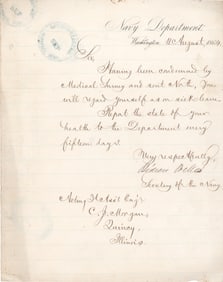 Navy Department,
Washington, 11 August, 1864.
Sir,
Having been condemned by
Medical Survey and sent North, you
will regard yourself as on sick leave.
Report the state of your
health to the Department every
fifteen days.
Very respectfully,
Gideon Welles
Secretary of the Navy
Acting
C. J. Morgan,
Quincy,
Illinois.